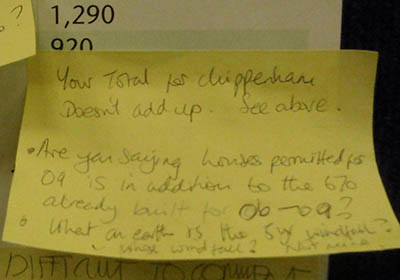 ?
1,290
920
Your Total for Chippenham
Doesn't add up. See above.
• Are you saying houses permitted for
09 is in addition to the 670
already built for 06-09?
• What on earth is the 5yr windfall?
Whose windfall? Not mine.
DIFFICULT TO COMMENT